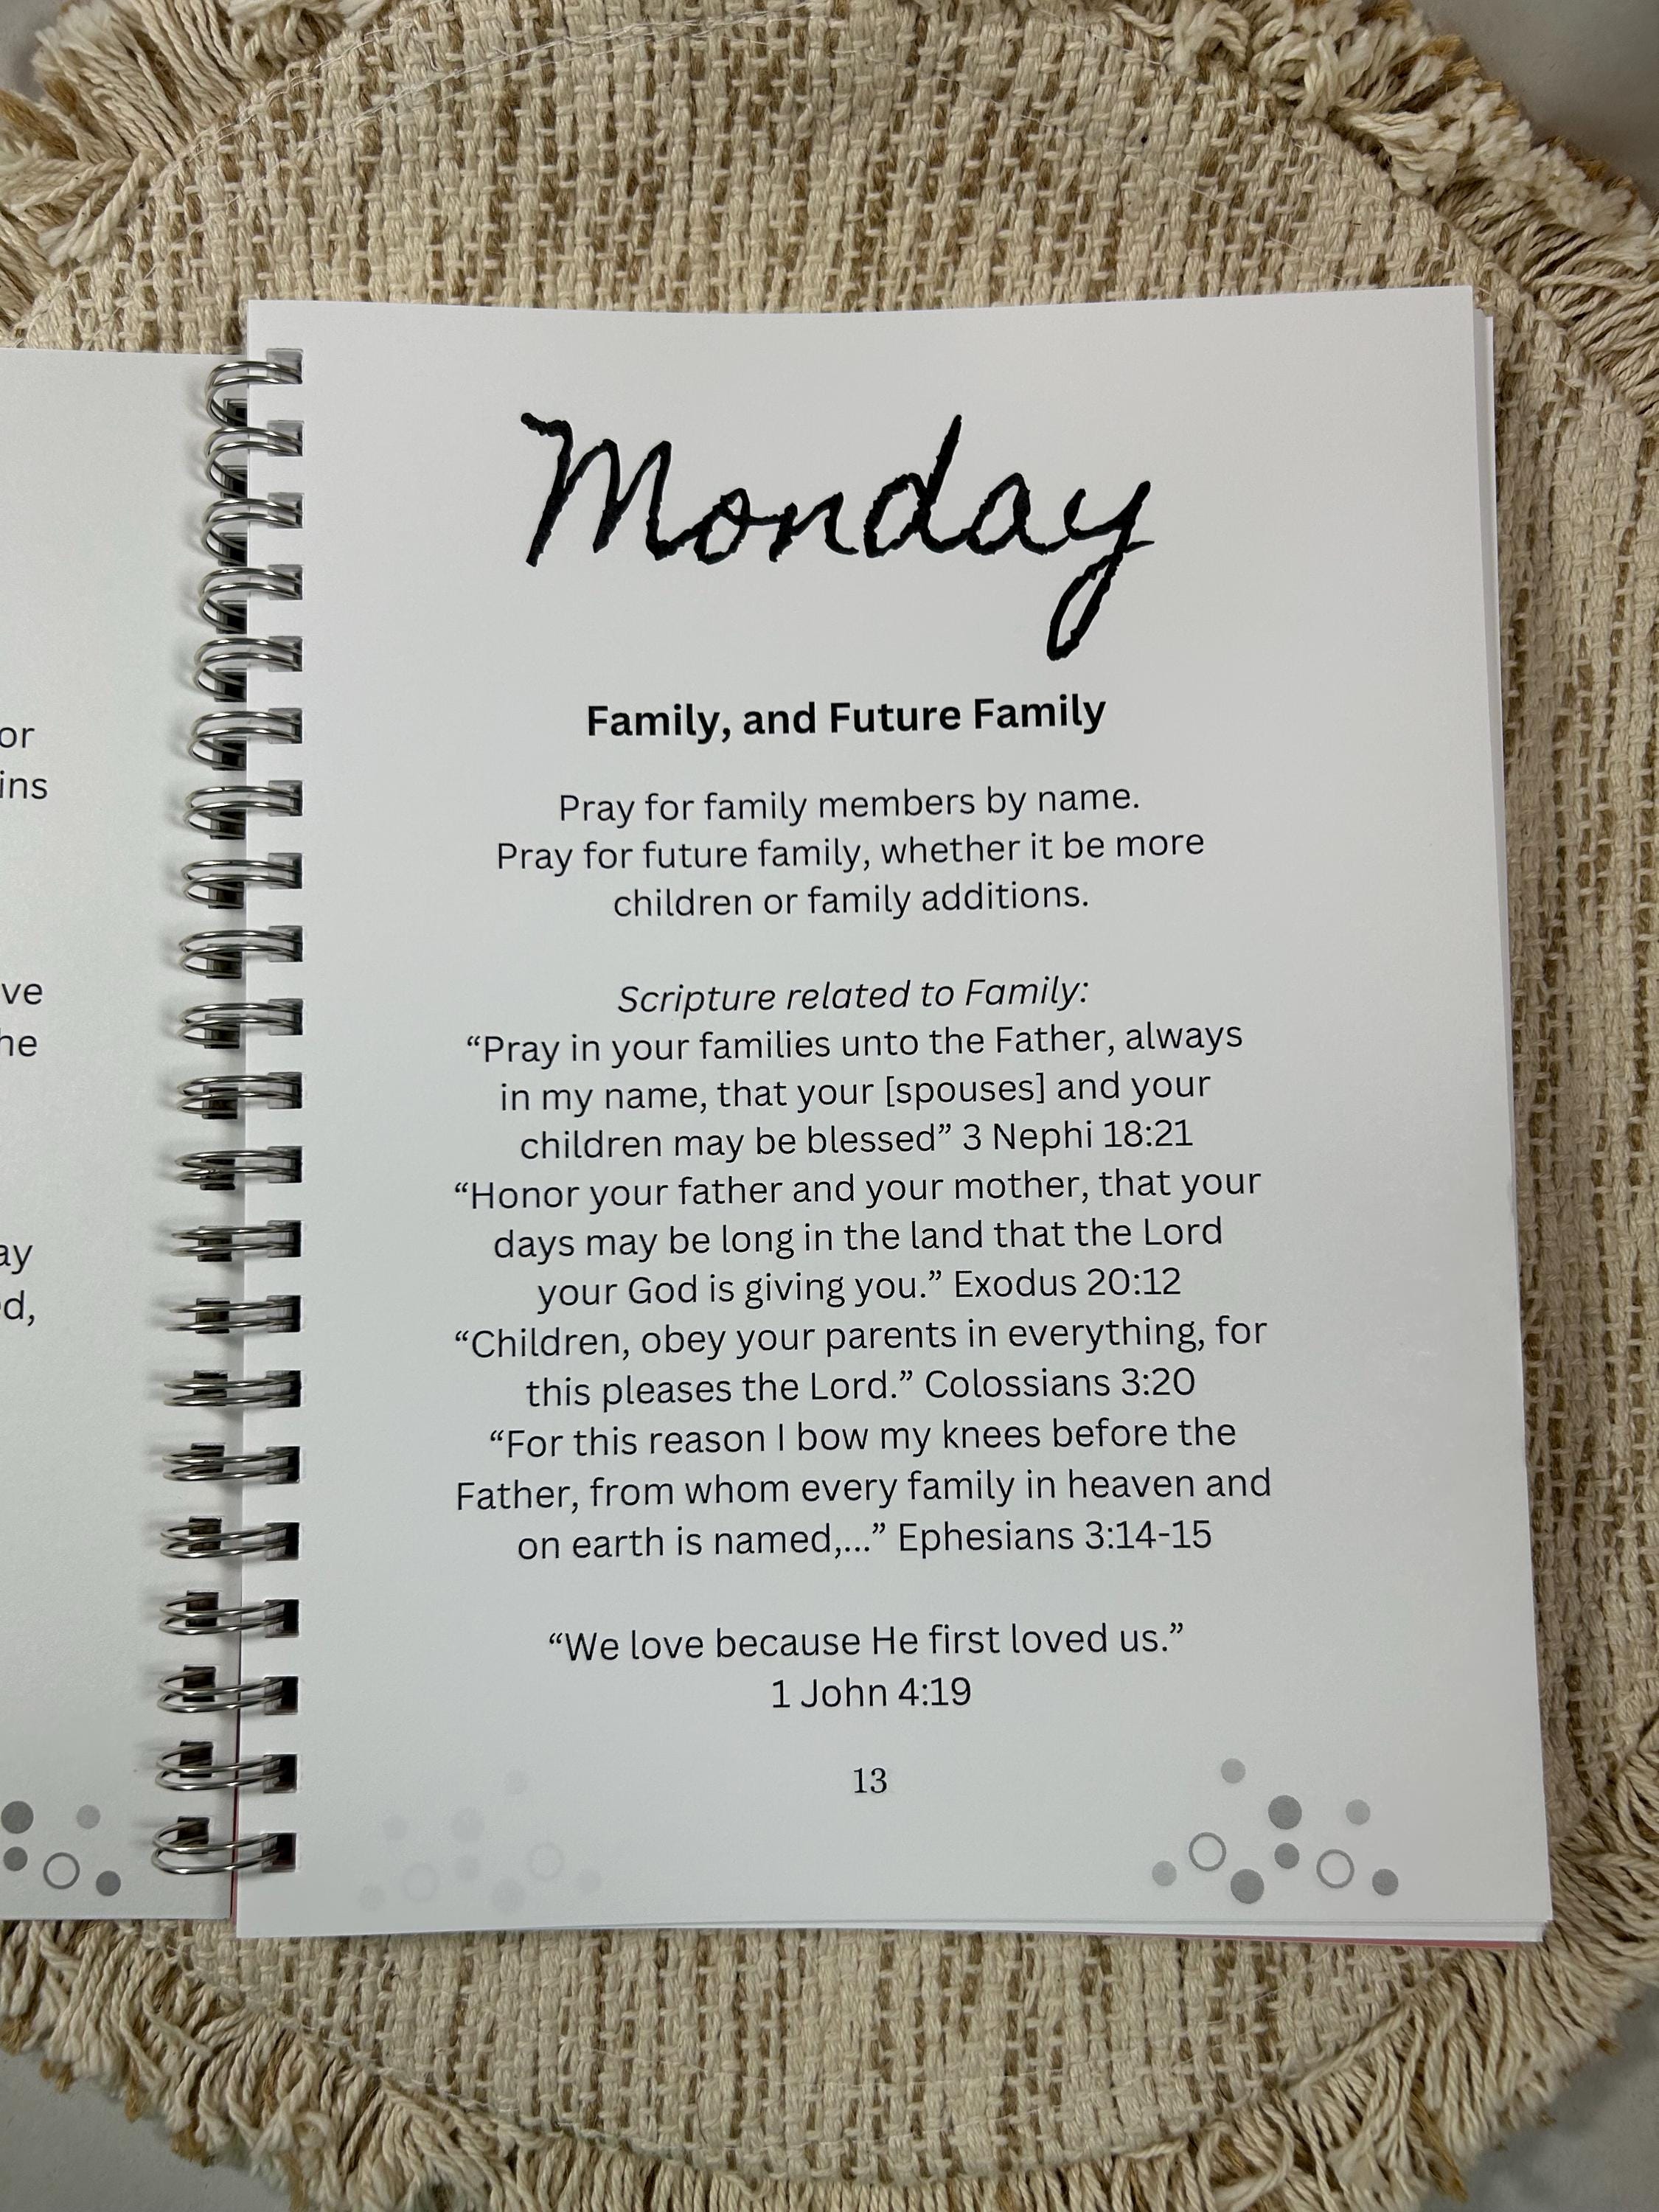 or
ins
ve
he
ay
d,
Monday
Family, and Future Family
Pray for family members by name.
Pray for future family, whether it be more
children or family additions.
Scripture related to Family:
“Pray in your families unto the Father, always
in my name, that your [spouses] and your
children may be blessed” 3 Nephi 18:21
“Honor your father and your mother, that your
days may be long in the land that the Lord
your God is giving you.” Exodus 20:12
“Children, obey your parents in everything, for
this pleases the Lord.” Colossians 3:20
“For this reason I bow my knees before the
Father, from whom every family in heaven and
on earth is named,...” Ephesians 3:14-15
“We love because He first loved us.”
1 John 4:19
13